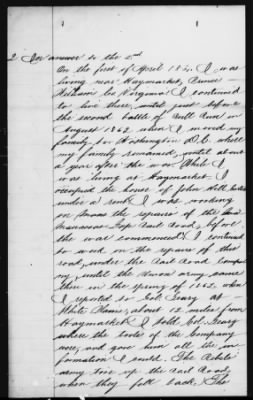 2 In answer to the 2nd
On the first of April 1861 I was
living near Haymarket, Prince
William Co Virginia I continued
to live there, until just before
the second battle of Bull Run in
August 1862 when I moved my
family to Washington D.C. where
my family remained, until about
a year after the war While I
was living at Haymarket I
occupied the house of John Hill,
under a rent I was working
on the repairs of the
Manassas Gap Rail Road, before
the war commenced I continued
to work on the repairs of this
road, under the Rail Road Compa
ny, until the Union army came
there in the spring of 1862 when
I reported to Col. Geary at
White Plains, about 12 miles from
Haymarket I told Col. Geary
where the tools of the Company
were, and gave him all the in
formation I could. The Rebels
army tore up the rail road,
when they fell back. The